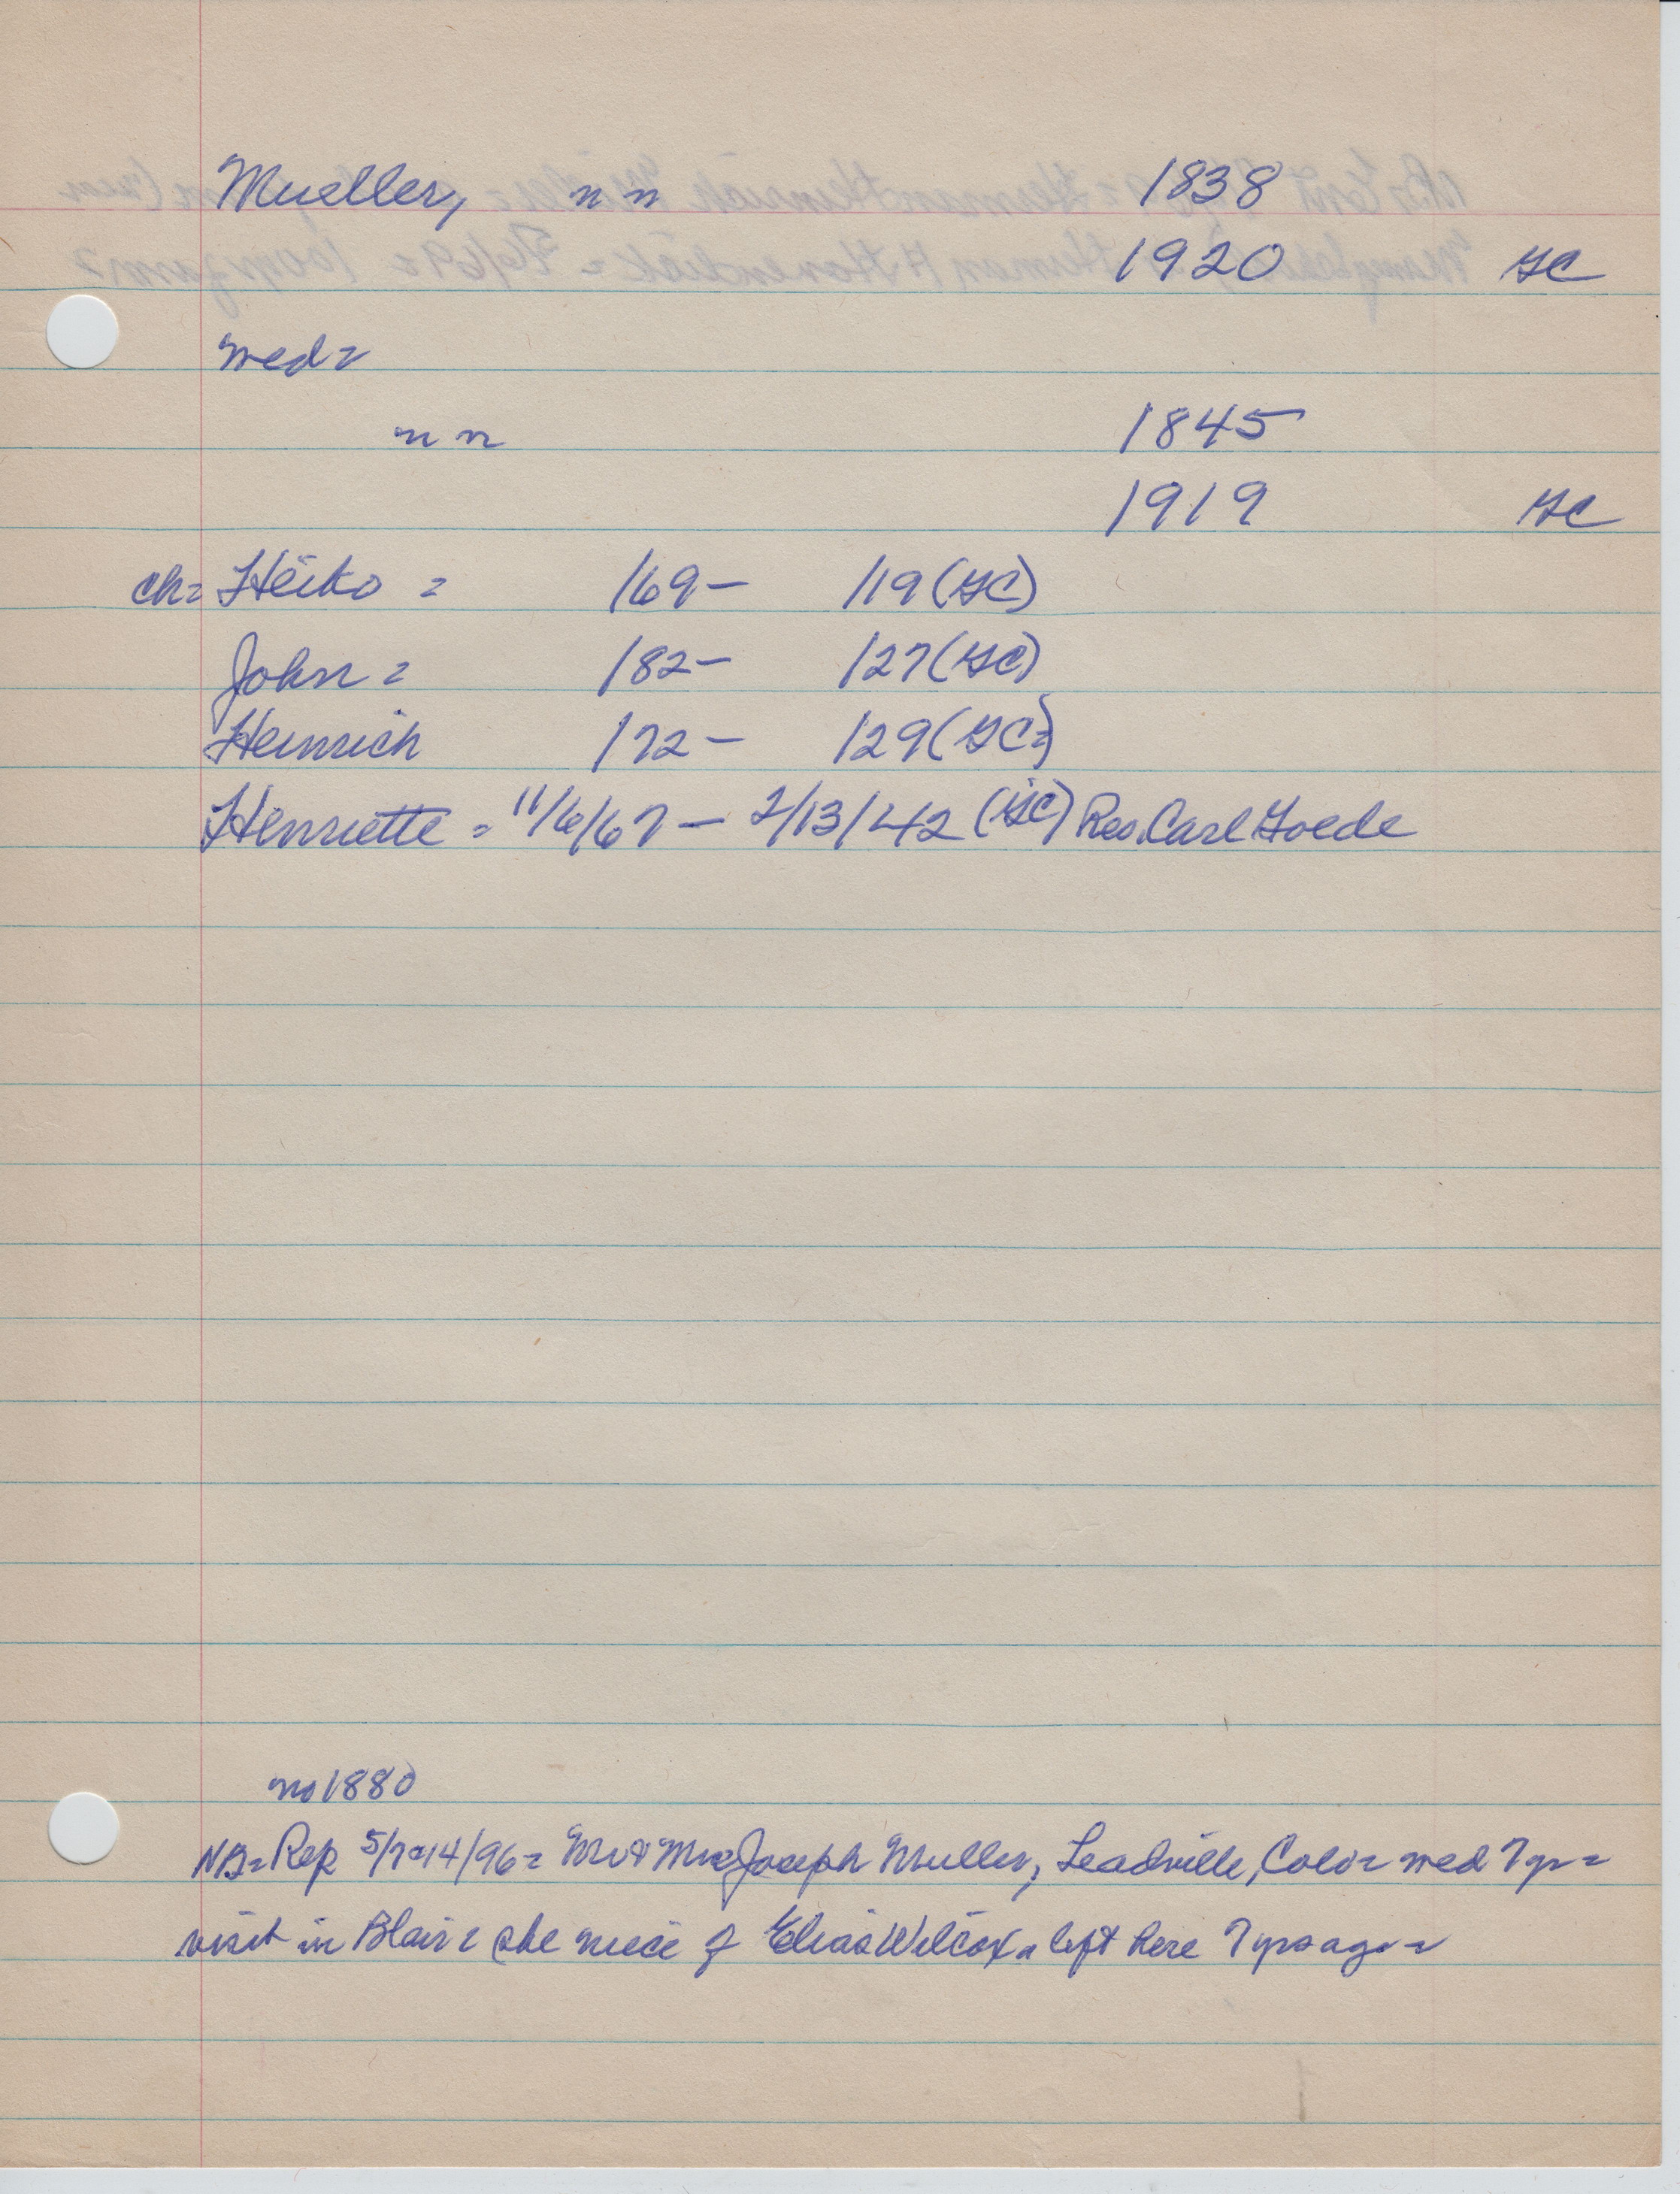 Mueller, nn 1838
1920 GC
wed=
nn 1845
1919 GC
ch= Heiko = /69- /19 (GC)
John = /82- /27 (GC)
Heinrich /72- /29 (GC=)
Henriette = 11/6/67 - 2/13/42 (GC) Rev. Carl Goede
no 1880
NB= Rep 5/7=14/96= Mr & Mrs Joseph Muller, Leadville, Colo= wed 7 yr=
visit in Blair= she niece of Elias Wilcox = left here 7 yrs ago=